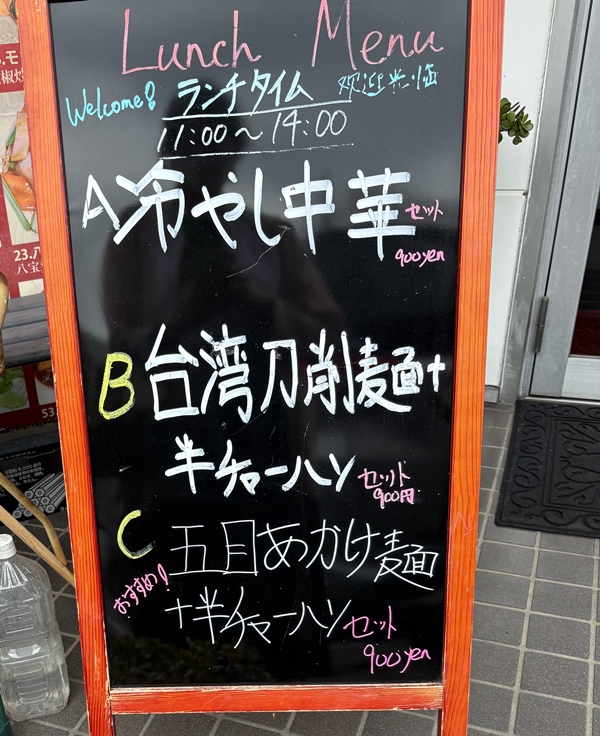 Lunch Menu
Welcome! ランチタイム 欢迎光临
11:00～14:00
A 冷やし中華 セット
900yen
B 台湾刀削麺+
半チャーハン セット
900円
C 五目あかけ麺
おすすめ!
+半チャーハン セット
900yen
23.八
八宝
53.